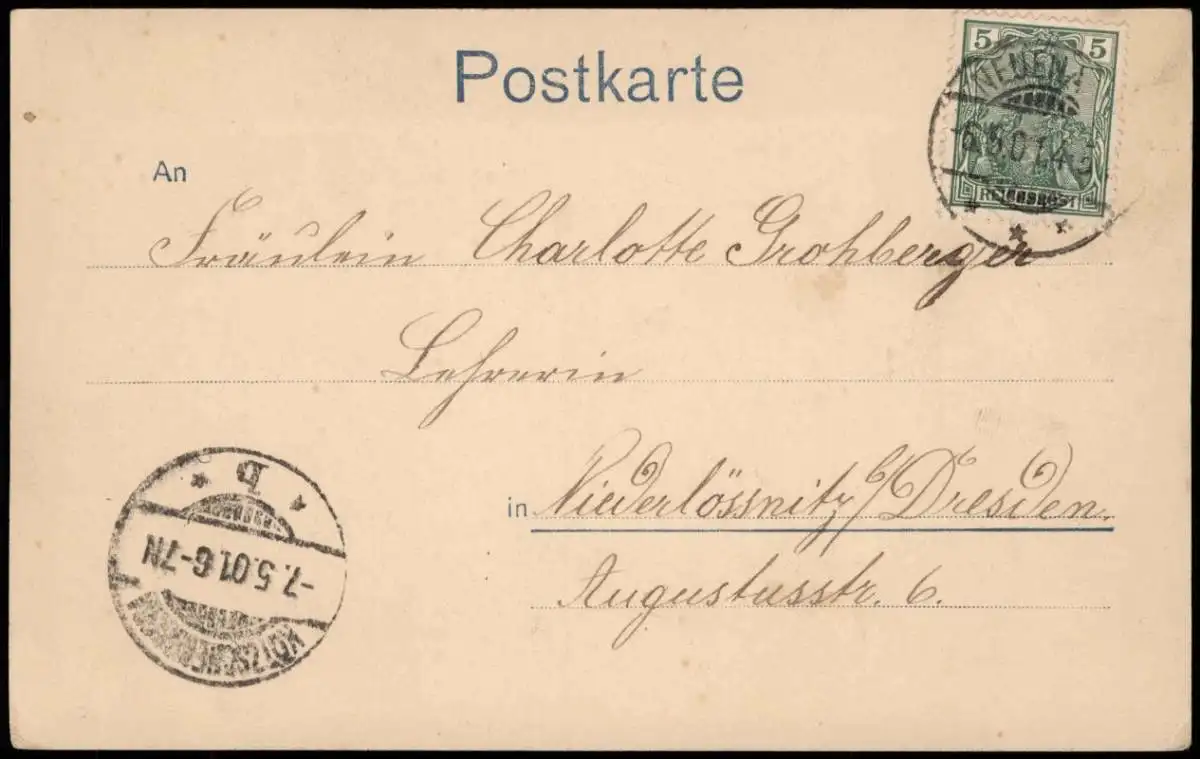 Postkarte
5 5
-6.5.01.4-
REICHSPOST
An
Fräulein Charlotte Grohberger
Lehrerin
in Niederlössnitz b/Dresden.
Augustusstr. 6.
b
-7.5.01.6-7N